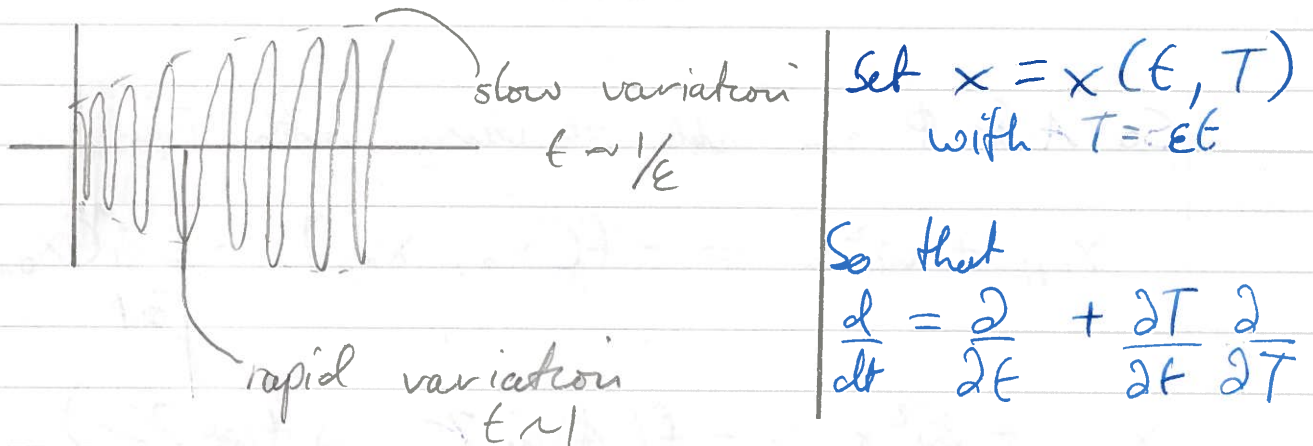 slow variation
t ~ 1/ε
rapid variation
t ~ 1
Set x = x(t, T)
with T = εt
So that
d/dt = ∂/∂t + ∂T/∂t ∂/∂T